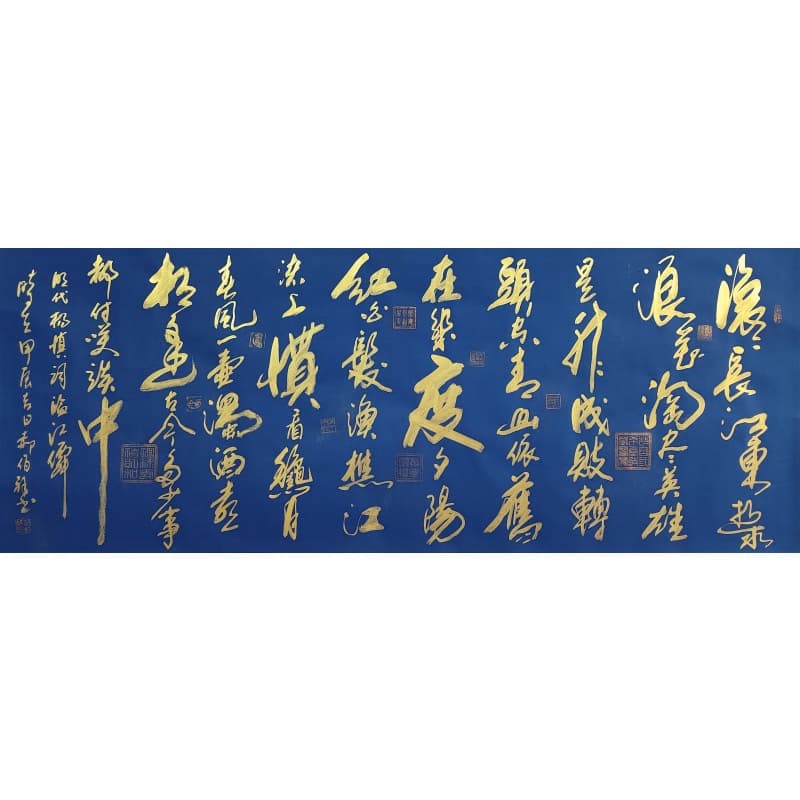 滚滚長江東逝水
浪花淘尽英雄
是非成敗轉
頭空青山依舊
在幾度夕陽
紅白髮漁樵江
渚上慣看龝月
春風一壺濁酒喜
相逢古今多少事
都付笑談中
明代楊慎詞臨江僊
時在甲辰吉日郝伯 書